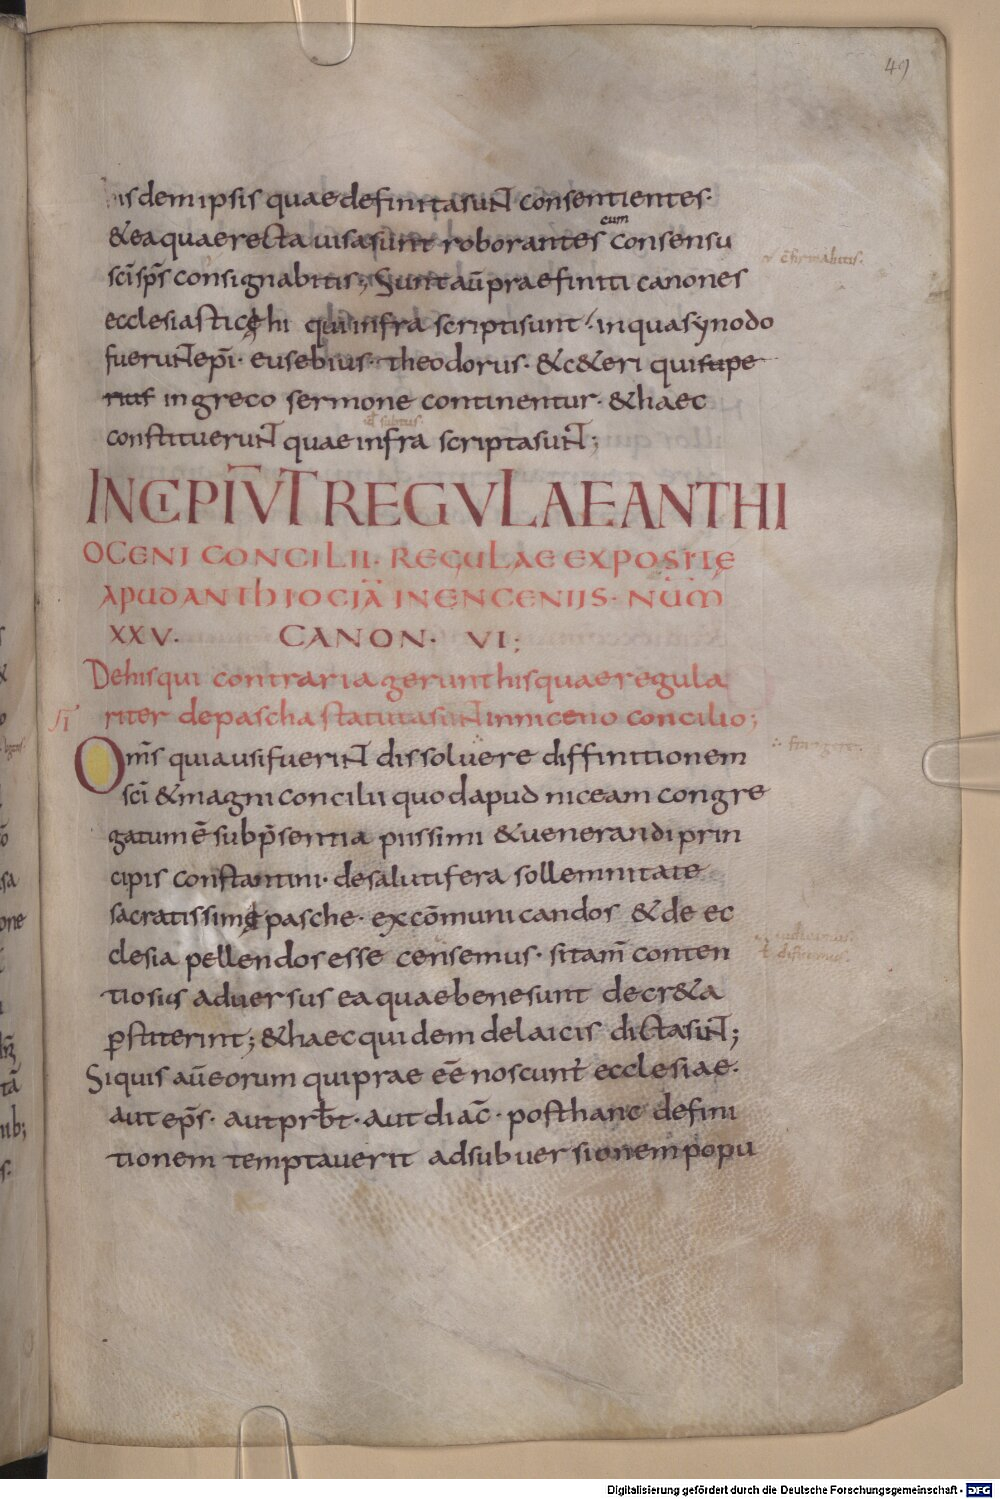 49
hisdemipsis quaedefinitasunt consentientes·
&eaquaerecta uisasunt roborantes consensu
cum
scīsp̄s consignabitis; Suntaūpraefiniti canones
ecclesiasticę hi qui infra scriptisunt· inquasynodo
fueruntep̄i· eusebius· theodorus· &c&eri quisupe
rius ingreco sermone continentur· &haec
constituerunt quaeinfra scriptasunt;
INCIPIVT REGVLAE ANTHI
OCENI CONCILII· REGULAE EXPOSITE
APUD ANTHIOCIĀ IN ENCENIIS· NUM̄
XXV· CANON· VI;
Dehisqui contraria gerunt hisquaeregula
riter depascha statutasunt inniceno concilio;
Om̄s quiausifuerint dissoluere diffinitionem
scī &magni concilii quodapud niceam congre
gatumē subp̄sentia piissimi &uenerandi prin
cipis constantini· desalutifera sollemnitate
sacratissimę pasche· excōmunicandos &de ec
clesia pellendos esse censemus· sitam̄ conten
tiosius aduersus ea quaebenesunt decr&a
p̄stiterint; &haecquidem delaicis dictasunt;
Siquis aūeorum quiprae eē noscunt ecclesiae·
aut ep̄s· autprb̄t· aut diac̄· posthanc defini
tionem temptauerit adsubuersionempopu
Digitalisierung gefördert durch die Deutsche Forschungsgemeinschaft - DFG